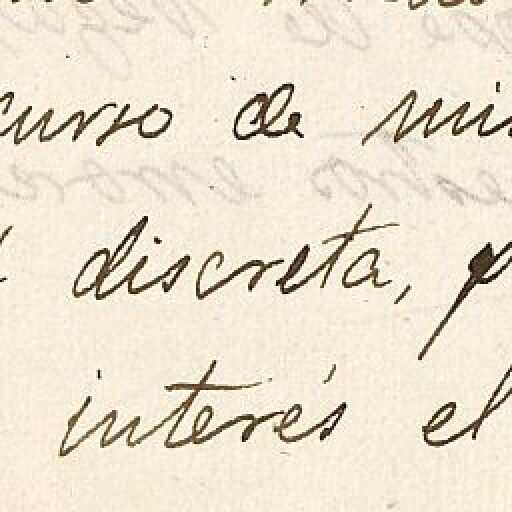 curso de mis
discreta, p
interés el